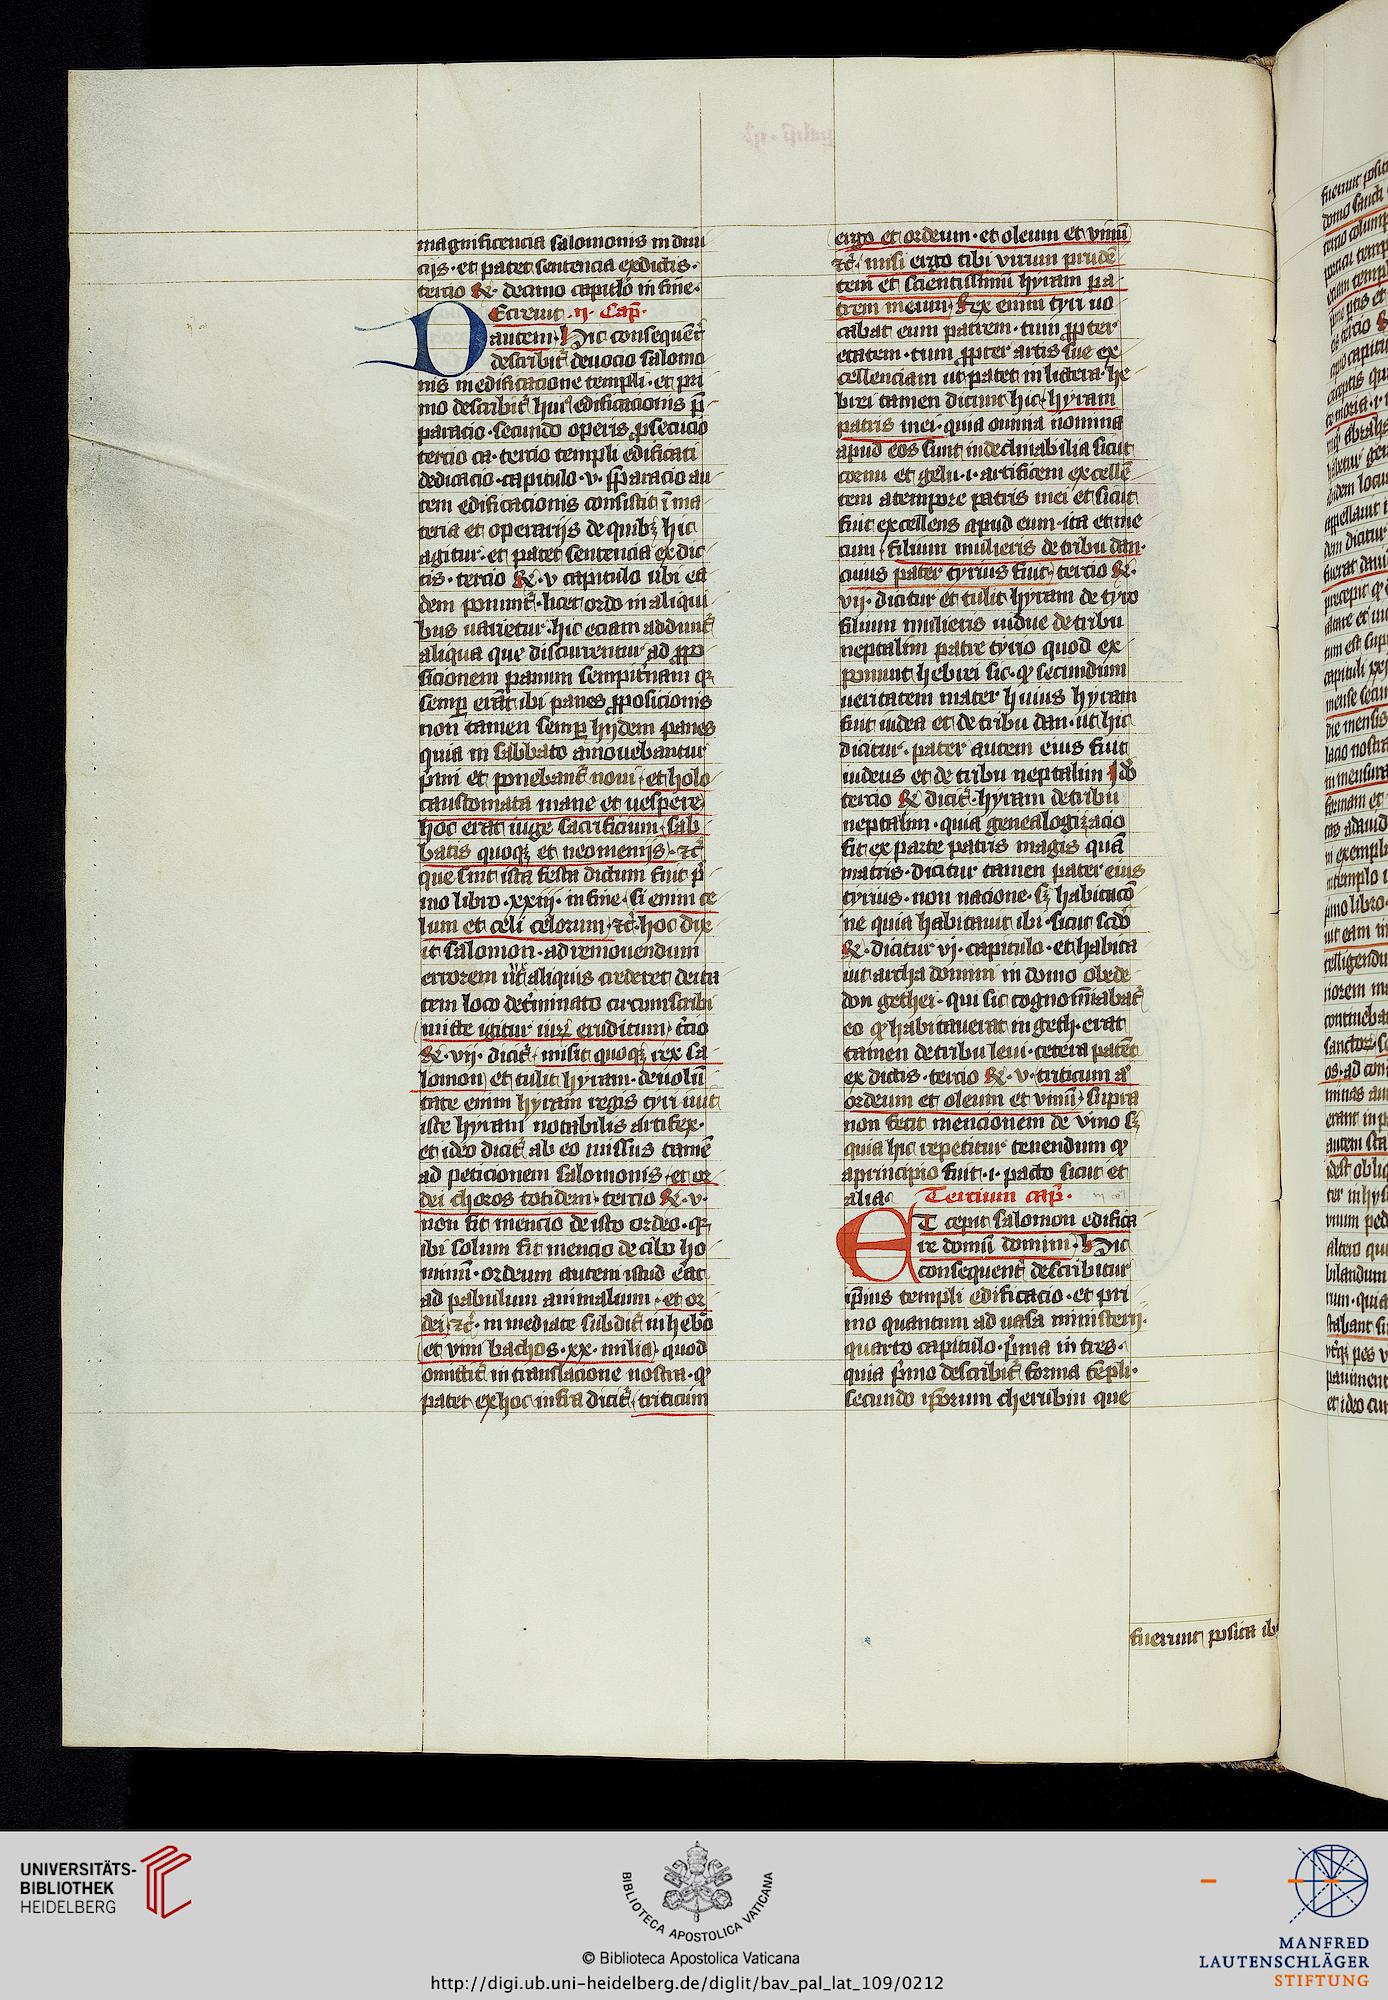 magnificencia salomonis in diui
ciis · et patet sentencia ex dictis ·
tercio Re · decimo capitulo in fine ·
DEcreuit · ij · Cap̃ ·
autem · Hic consequent̃
describit̃ deuocio salomo
nis in edificacione templi · et pri
mo describit̃ huiꝰ edificacionis p̄
paracio · secundo operis ꝓsecucio
tercio ca · tercio templi edificati
dedicacio · capitulo · v · p̄paracio au
tem edificacionis consistit ī ma
teria et operarijs de quibꝫ hic
agitur · et patet sentencia ex dic
tis · tercio Re · v capitulo ubi ea
dem ponunt̃ · licet ordo in aliqui
bus varietur · hic eciam addunt̃
aliqua que discurrentur ad ꝓpo
sicionem panum sempit̃nam qꝛ
semꝑ erāt ibi panes ꝓposicionis
non tamen semꝑ hijdem panes
quia in sabbato amouebantur
p̃mi et ponebant̃ noui · et holo
caustomata mane et uespere
hoc erat iuge sacrificium · sab
batis quoqꝫ et neomenijs · ⁊c̃
que sint ista festa dictum fuit p̃
mo libro · xxiii · in fine · si enim ce
lum et celi celorum · ⁊c̃ · hoc dix
it salomon · ad remouendum
errorem ne aliquis crederet deita
tem loco det̃minato circumscribi
mitte igitur m̃ eruditum · t̃cio
Re · vii · dicit̃ · misit quoqꝫ rex sa
lomon et tulit hyram · de uolū
tate enim hyram regis tyri uit
iste hyram notabilis artifex ·
et ideo dicit̃ ab eo missus tamē
ad peticionem salomonis · et or
dei choros totidem · tercio Re · v ·
non fit mencio de isto ordeo · qꝛ
ibi solum fit mencio de cibo ho
minū · ordeum autem istud erat
ad pabulum animalium · et or
dei · ⁊c̃ · inmediate subdit̃ in hebõ
et vini bachos · xx · milia · quod
omittit̃ in translacione nostra · ꝙ
patet ex hoc infra dicit̃ · triticum
ergo et ordeum · et oleum et vinū
⁊c̃ · misi ergo tibi virum prudē
tem et scientissimū hyram pa
trem meum · Rex enim tyri uo
cabat eum patrem · tum ꝓpter
etatem · tum ꝓpter artis sue ex
cellenciam ut patet in littera · he
brei tamen dicunt hic · hyram
patris mei · quia omnia nomina
apud eos sunt indeclinabilia sicut
cornu et gelu · i · artificem excellē
tem a tempore patris mei et sicut
fuit excellens apud eum · ita et me
cum · filium mulieris de tribu dan ·
cuius pater tyrius fuit · tercio Re ·
vij · dicitur et tulit hyram de tyro
filium mulieris uidue de tribu
neptalim patre tyrio quod ex
ponunt hebrei sic · ꝙ secundum
ueritatem mater huius hyram
fuit iudea et de tribu dan · ut hic
dicitur · pater autem eius fuit
iudeus et de tribu neptalim Idõ
tercio Re dicit̃ · hyram de tribu
neptalim · quia genealogizacio
fit ex parte patris magis quā
matris · dicitur tamen pater eius
tyrius · non nacione · sꝫ habitacō
ne quia habitauit ibi · sicut scdõ
Re · dicitur vi · capitulo · et habita
uit archa domini in domo obede
dom gethei · qui sic cognominabat̃
eo ꝙ habitauerat in geth · erat
tamen de tribu leui · cetera patēt
ex dictis · tercio Re · v · triticum a͂
ordeum et oleum et vinū · supra
non fecit mencionem de vino sꝫ
quia hic repetitur tenendum ꝙ
a principio fuit · i · pacto sicut et
alia · Tercium cap̃ ·
ET cepit salomon edifica
re domū domini · Hic
consequent̃ describitur
ip̃ius templi edificacio · et pri
mo quantum ad uasa ministerij ·
quarto capitulo · p̃ma in tres ·
quia p̃mo describit̃ forma tēpli ·
secundo ip̃orum cherubin que
fuerunt posita ib
UNIVERSITÄTS-
BIBLIOTHEK
HEIDELBERG
BIBLIOTECA APOSTOLICA VATICANA
© Biblioteca Apostolica Vaticana
http://digi.ub.uni-heidelberg.de/diglit/bav_pal_lat_109/0212
MANFRED
LAUTENSCHLÄGER
STIFTUNG